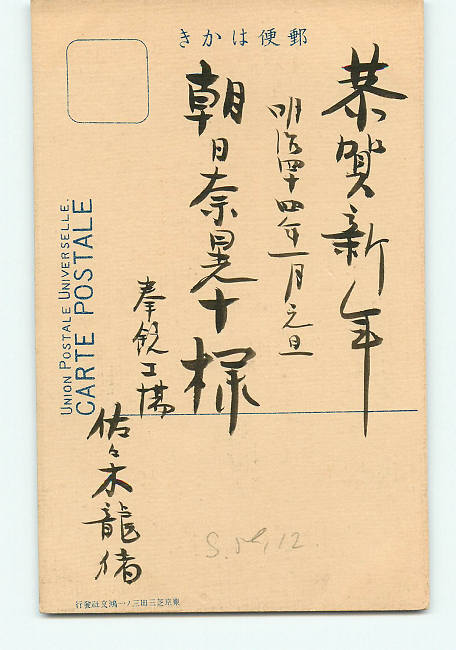 郵便はかき
恭賀新年
明治四十四年一月元旦
朝日奈晃十様
工場
佐々木龍
UNION POSTALE UNIVERSELLE.
CARTE POSTALE
東京芝三田三ノ一鴻文社發行